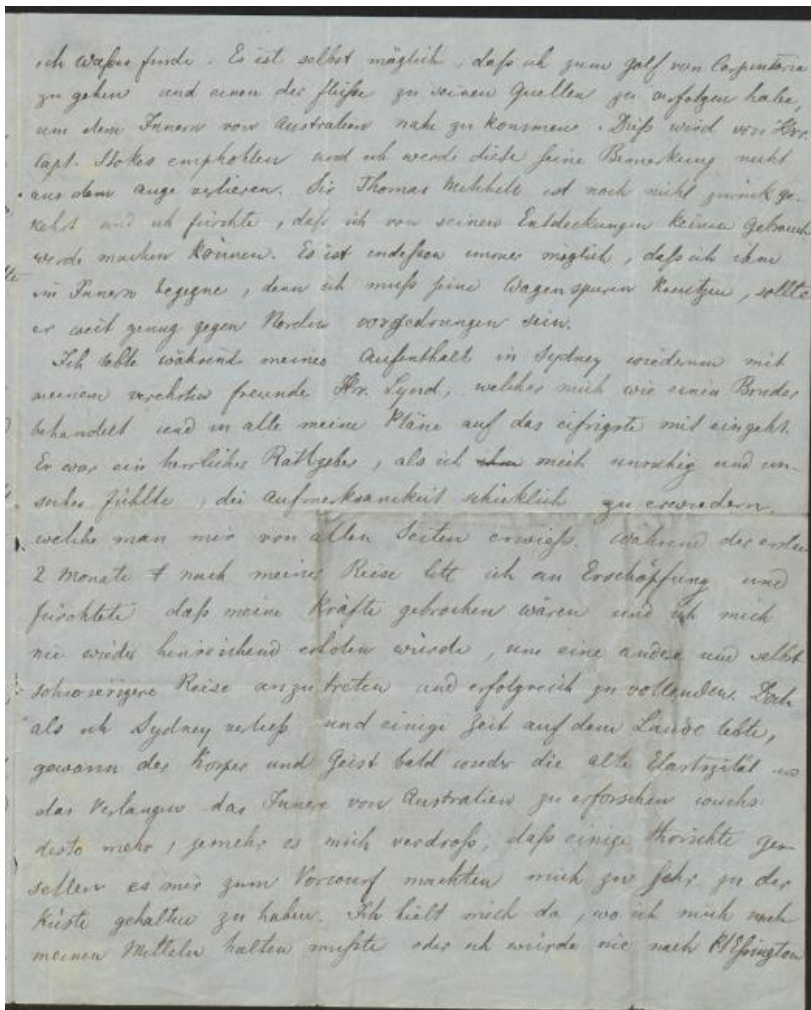 ich Waßer finde. Es ist selbst möglich, daß ich zum Golf von Carpentaria
zu gehen und einen der Flüße zu seinen Quellen zu verfolgen habe,
um dem Innern von Australien nahe zu kommen. Dieß wird von Hrr.
Capt. Stokes empfohlen und ich werde diese seine Bemerkung nicht
aus dem Auge verlieren. Sir Thomas Mitchell ist noch nicht zurück ge-
kehrt und ich fürchte, daß ich von seinen Entdeckungen keinen Gebrauch
werde machen können. Es ist indeßen immer möglich, daß ich ihm
im Innern begegne, denn ich muß seine Wagenspuren kreutzen, sollte
er weit genug gegen Norden vorgedrungen sein.
Ich lebte während meines Aufenthalt in Sydney wiederum mit
meinem verehrten Freunde Hrr. Lynd, welcher mich wie einen Bruder
behandelt und in alle meine Pläne auf das eifrigste mit eingeht.
Er war ein herrlicher Rathgeber, als ich mich unruhig und un-
sicher fühlte, die Aufmerksamkeit schicklich zu erwiedern,
welche man mir von allen Seiten erwieß. Während der ersten
2 Monate nach meiner Reise litt ich an Erschöpfung und
fürchtete daß meine Kräfte gebrochen wären und ich mich
nie wieder hinreichend erholen würde, um eine andere und selbst
schwierigere Reise anzutreten und erfolgreich zu vollenden. Doch
als ich Sydney verließ und einige Zeit auf dem Lande lebte,
gewann der Körper und Geist bald wieder die alte Elastizität und
das Verlangen das Innere von Australien zu erforschen wuchs
desto mehr, jemehr es mich verdroß, daß einige thörichte Ge-
sellen es mir zum Vorwurf machten mich zu sehr zu der
Küste gehalten zu haben. Ich hielt mich da, wo ich mich nach
meinen Mitteln halten mußte oder ich würde nie nach Pt Eßington